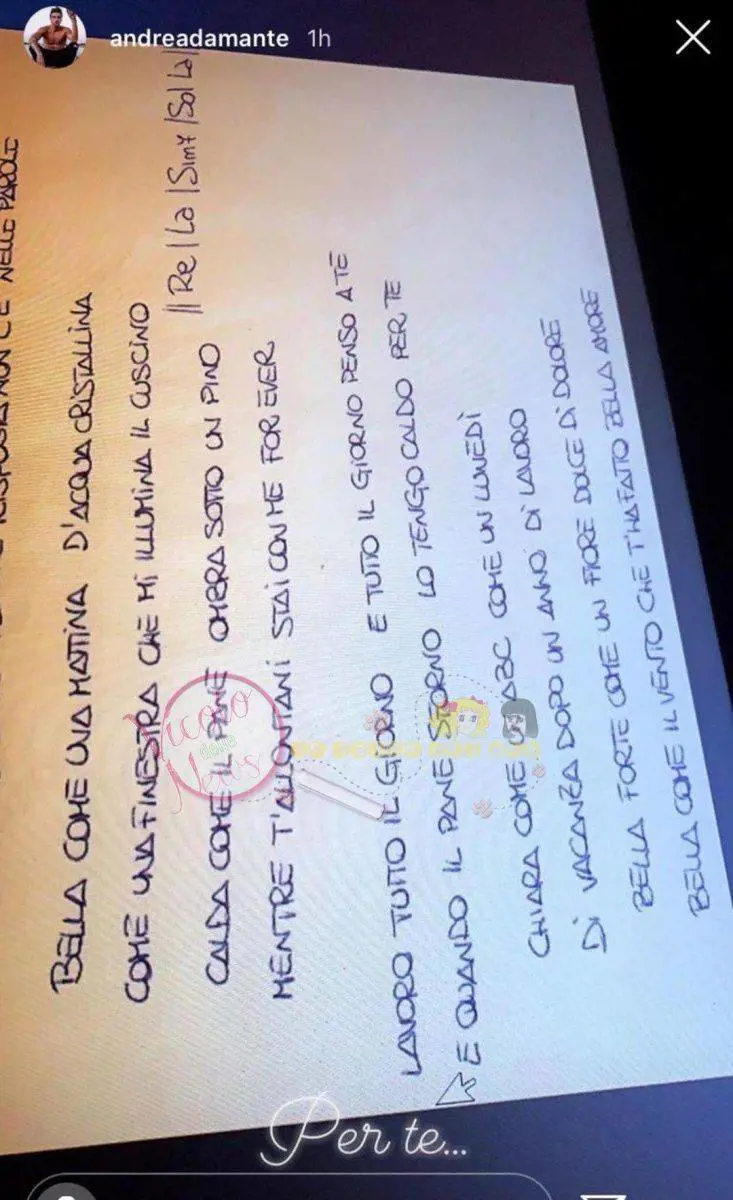 andreadamante 1h
NELLE PAROLE
BELLA COME UNA MATTINA D'ACQUA CRISTALLINA
COME UNA FINESTRA CHE MI ILLUMINA IL CUSCINO
CALDA COME IL PANE OMBRA SOTTO UN PINO || Re | La | Sim7 | Sol La |
MENTRE T'ALLONTANI STAI CON ME FOREVER
LAVORO TUTTO IL GIORNO E TUTTO IL GIORNO PENSO A TE
E QUANDO IL PANE SFORNO LO TENGO CALDO PER TE
CHIARA COME UN ABC COME UN LUNEDÌ
DI VACANZA DOPO UN ANNO DI LAVORO
BELLA FORTE COME UN FIORE DOLCE DI DOLORE
BELLA COME IL VENTO CHE T'HA FATTO BELLA AMORE
Vicolo
delle
News
Per te...